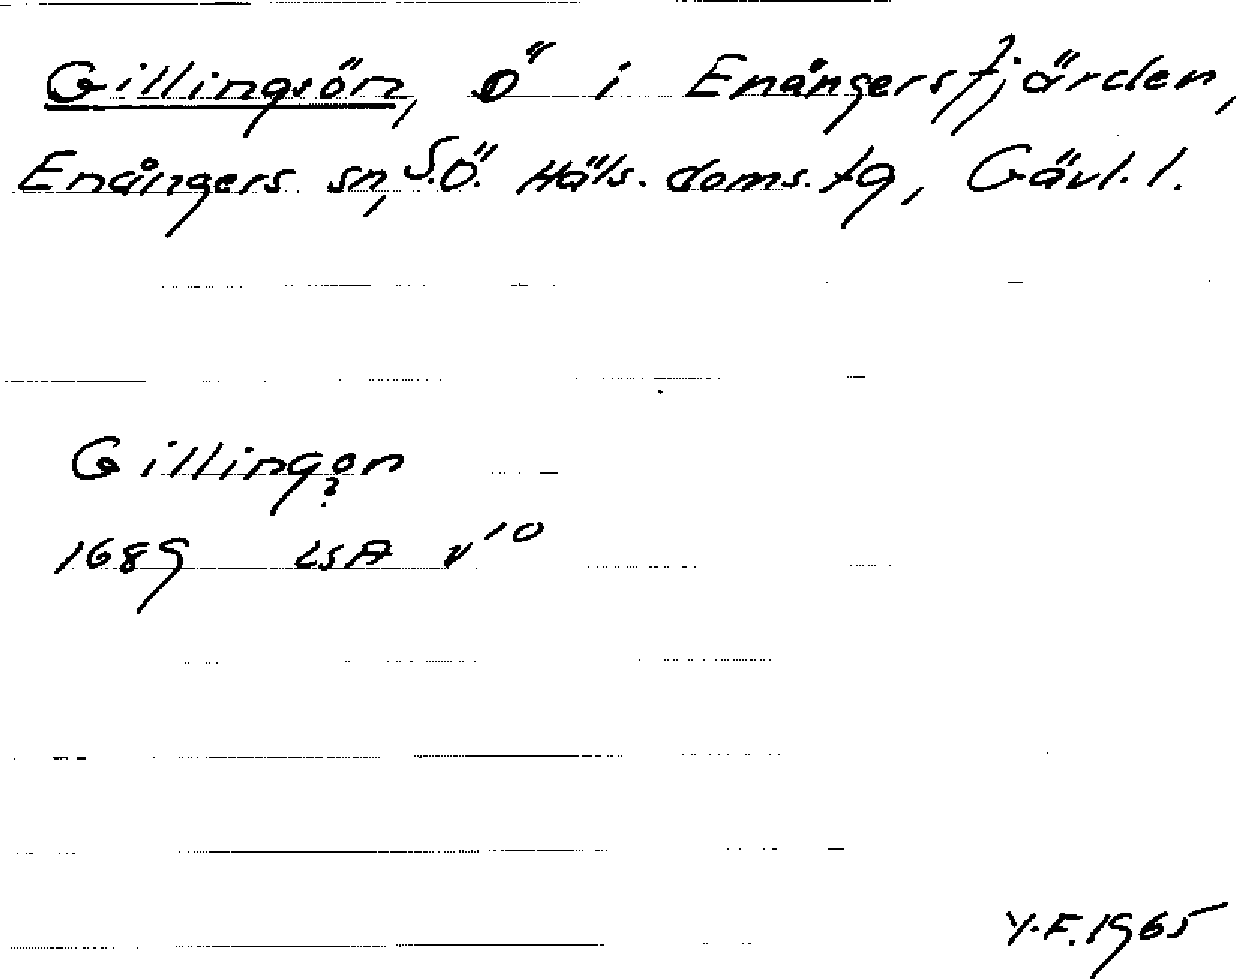 Gillingsön, ö i Enångersfjärden,
Enångers sn, S.Ö. Häls. doms. tg, Gävl. l.
Gillingon
?
1689 LSA v 10
Y.F. 1965